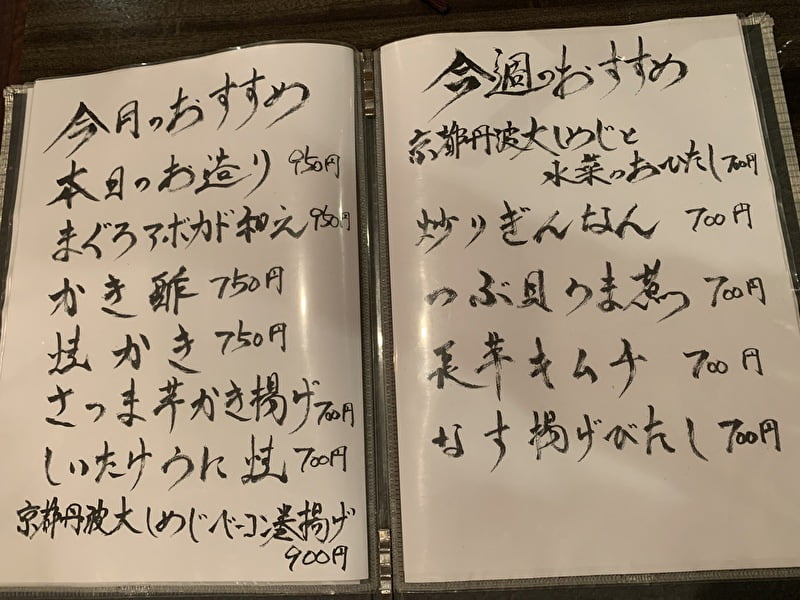 今月のおすすめ
本日のお造り 950円
まぐろアボカド和え 950円
かき酢 750円
焼かき 750円
さつま芋かき揚げ 700円
しいたけうに焼 700円
京都丹波大しめじベーコン巻揚げ
900円
今週のおすすめ
京都丹波大しめじと
水菜のおひたし 700円
炒りぎんなん 700円
つぶ貝うま煮 700円
長芋キムチ 700円
なす揚げびたし 700円